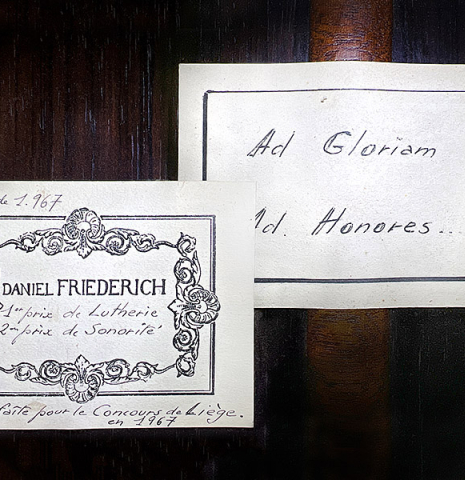 de 1.967
DANIEL FRIEDERICH
1er prix de Lutherie
2me prix de Sonorité
faite pour le Concours de Liège.
en 1967
Ad Gloriam
Ad. Honores...